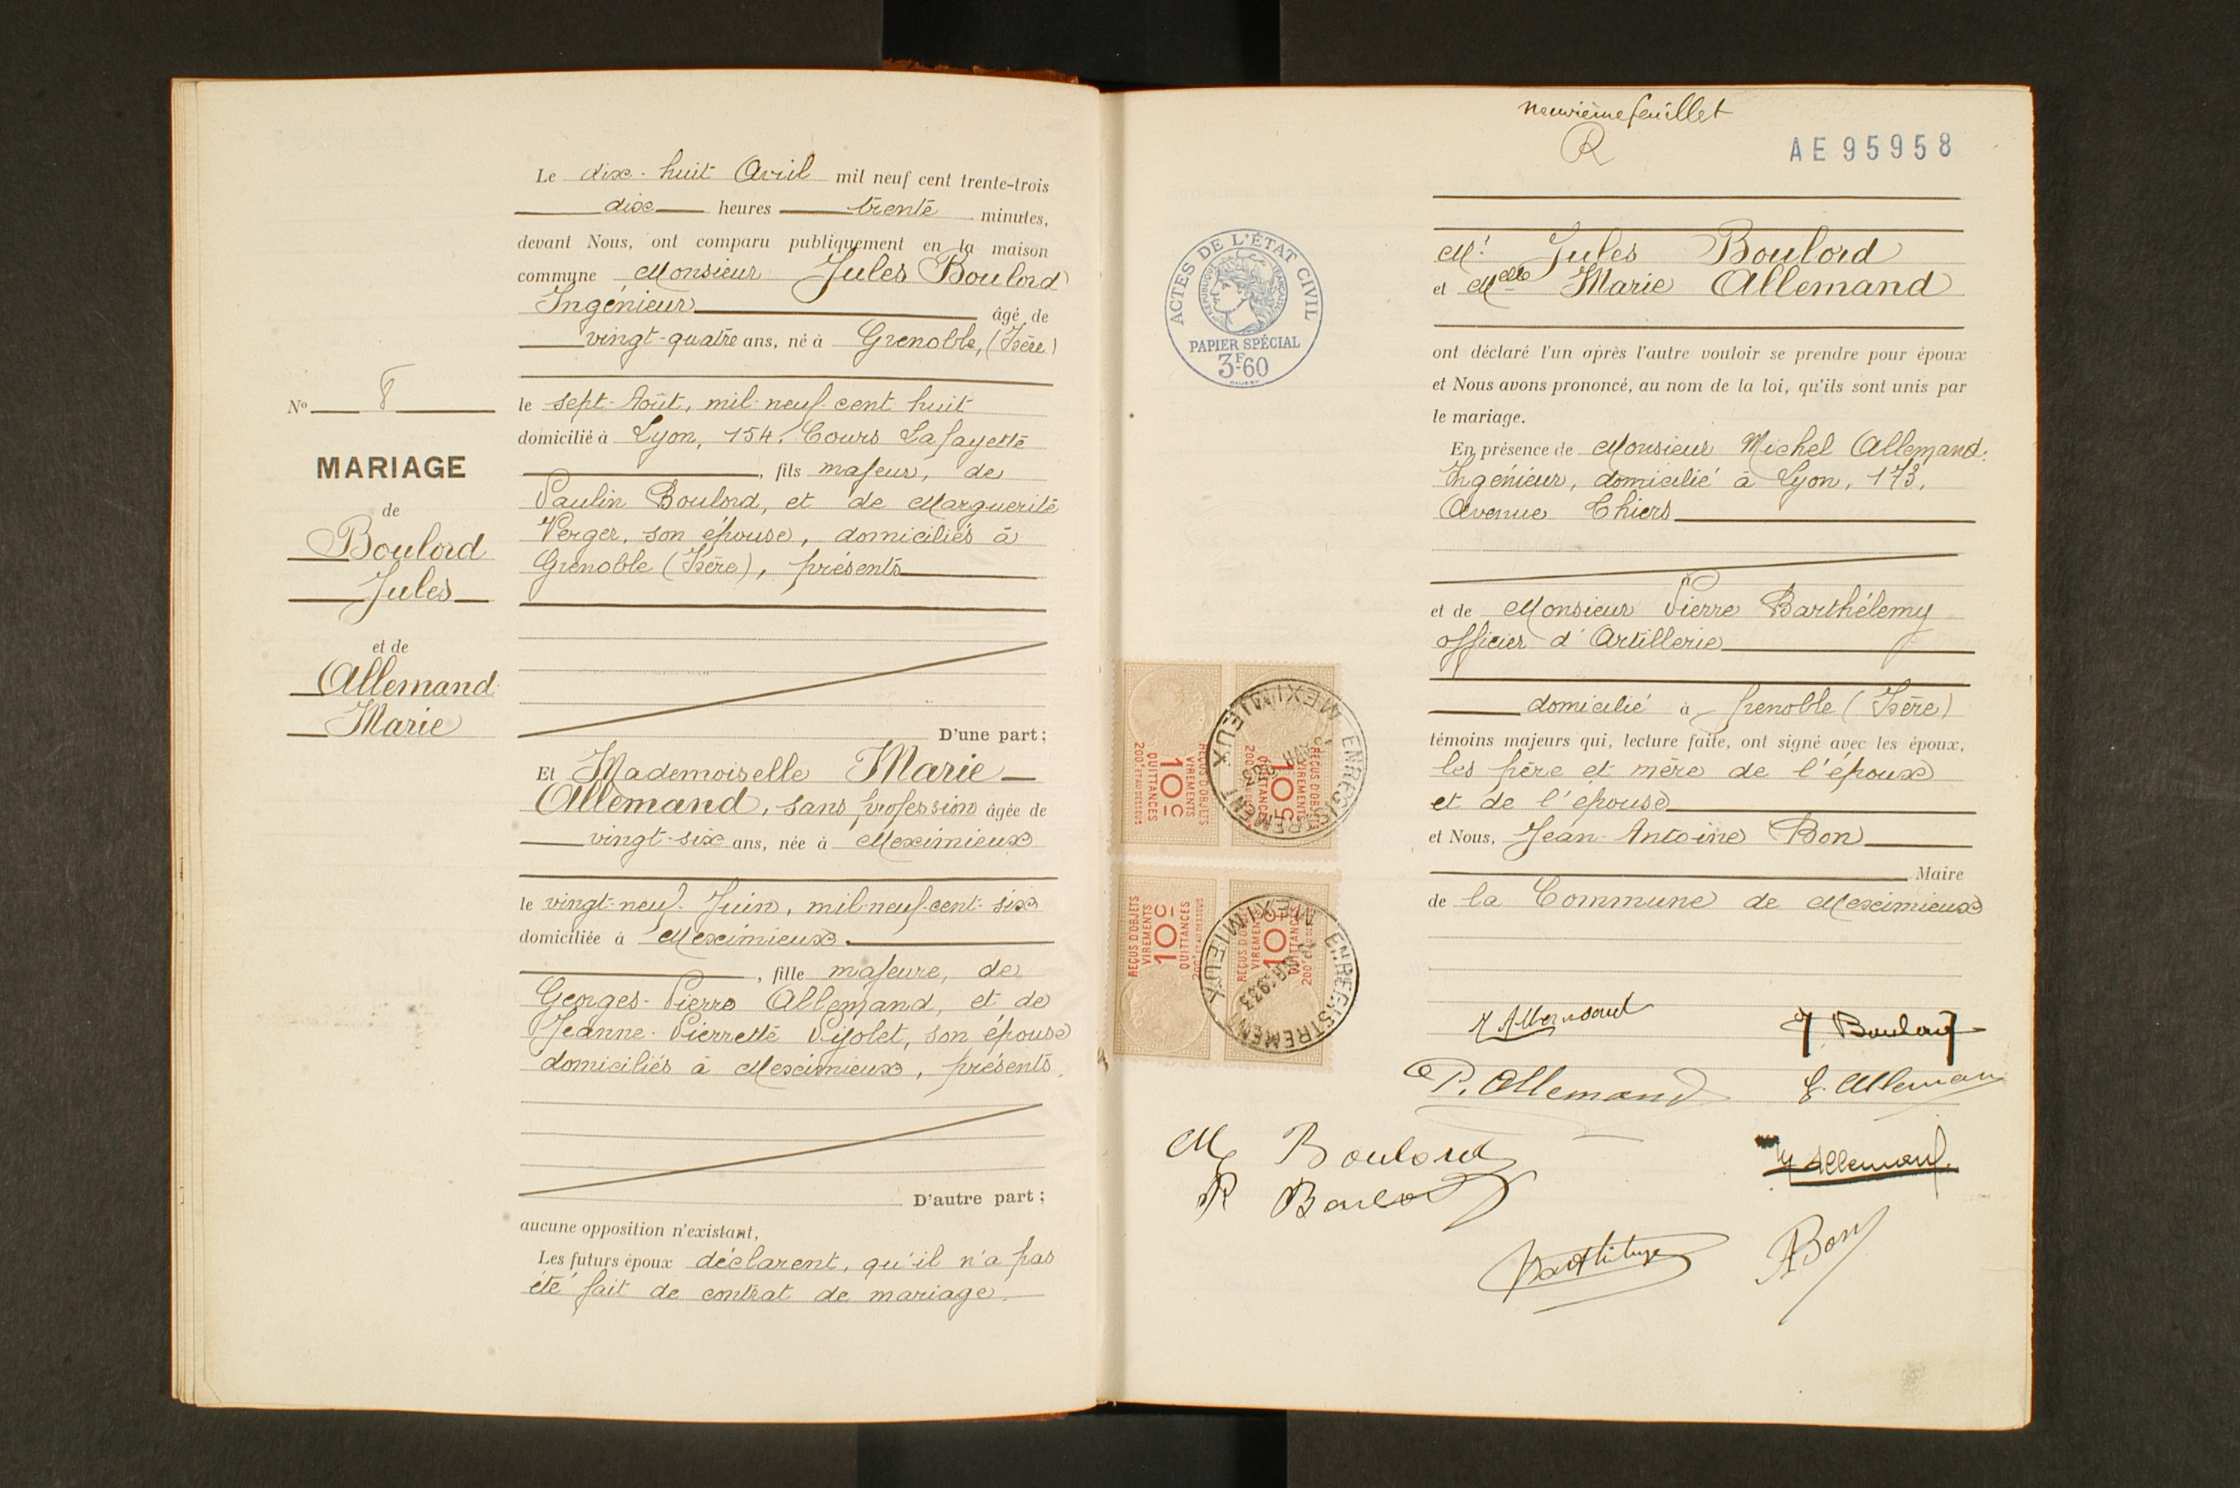 Le dix-huit Avril mil neuf cent trente-trois
dix heures trente minutes,
devant Nous, ont comparu publiquement en la maison
commune Monsieur Jules Boulord
Ingénieur âgé de
vingt-quatre ans, né à Grenoble, (Isère)
le sept Août, mil neuf cent huit
domicilié à Lyon, 154, Cours Lafayette
, fils majeur, de
Paulin Boulord, et de Marguerite
Verger, son épouse, domiciliés à
Grenoble (Isère), présents
D'une part;
Et Mademoiselle Marie
Allemand, sans profession âgée de
vingt-six ans, née à Meximieux
le vingt-neuf Juin, mil neuf cent six
domiciliée à Meximieux.
, fille majeure, de
Georges-Pierre Allemand, et de
Jeanne-Pierrette son épouse
domiciliés à Meximieux, présents.
D'autre part;
aucune opposition n'existant,
Les futurs époux déclarent, qu'il n'a pas
été fait de contrat de mariage.
No 8
MARIAGE
de
Boulord
Jules
et de
Allemand
Marie
neuvième feuillet
R
AE 95958
Mr Jules Boulord
et Melle Marie Allemand
ont déclaré l'un après l'autre vouloir se prendre pour époux
et Nous avons prononcé, au nom de la loi, qu'ils sont unis par
le mariage.
En présence de Monsieur Michel Allemand.
Ingénieur, domicilié à Lyon, 173,
Avenue Thiers
et de Monsieur Pierre Barthélemy
officier d'Artillerie
domicilié à Grenoble (Isère)
témoins majeurs qui, lecture faite, ont signé avec les époux,
les père et mère de l'époux
et de l'épouse
et Nous, Jean-Antoine Bon
Maire
de la Commune de Meximieux
ACTES DE L'ÉTAT CIVIL
RÉPUBLIQUE FRANÇAISE
PAPIER SPÉCIAL
3F.60
REÇUS D'OBJETS
VIREMENTS
50c
QUITTANCES
REÇUS D'OBJETS
VIREMENTS
50c
ENREGISTREMENT
MEXIMIEUX
REÇUS D'OBJETS
VIREMENTS
10c
QUITTANCES
REÇUS D'OBJETS
VIREMENTS
10c
QUITTANCES
ENREGISTREMENT
MEXIMIEUX
1933
M Allemand
J. Boulord
P. Allemand
G. Allemand
M Boulord
Allemand
P Boulord
Barthélemy
A Bon